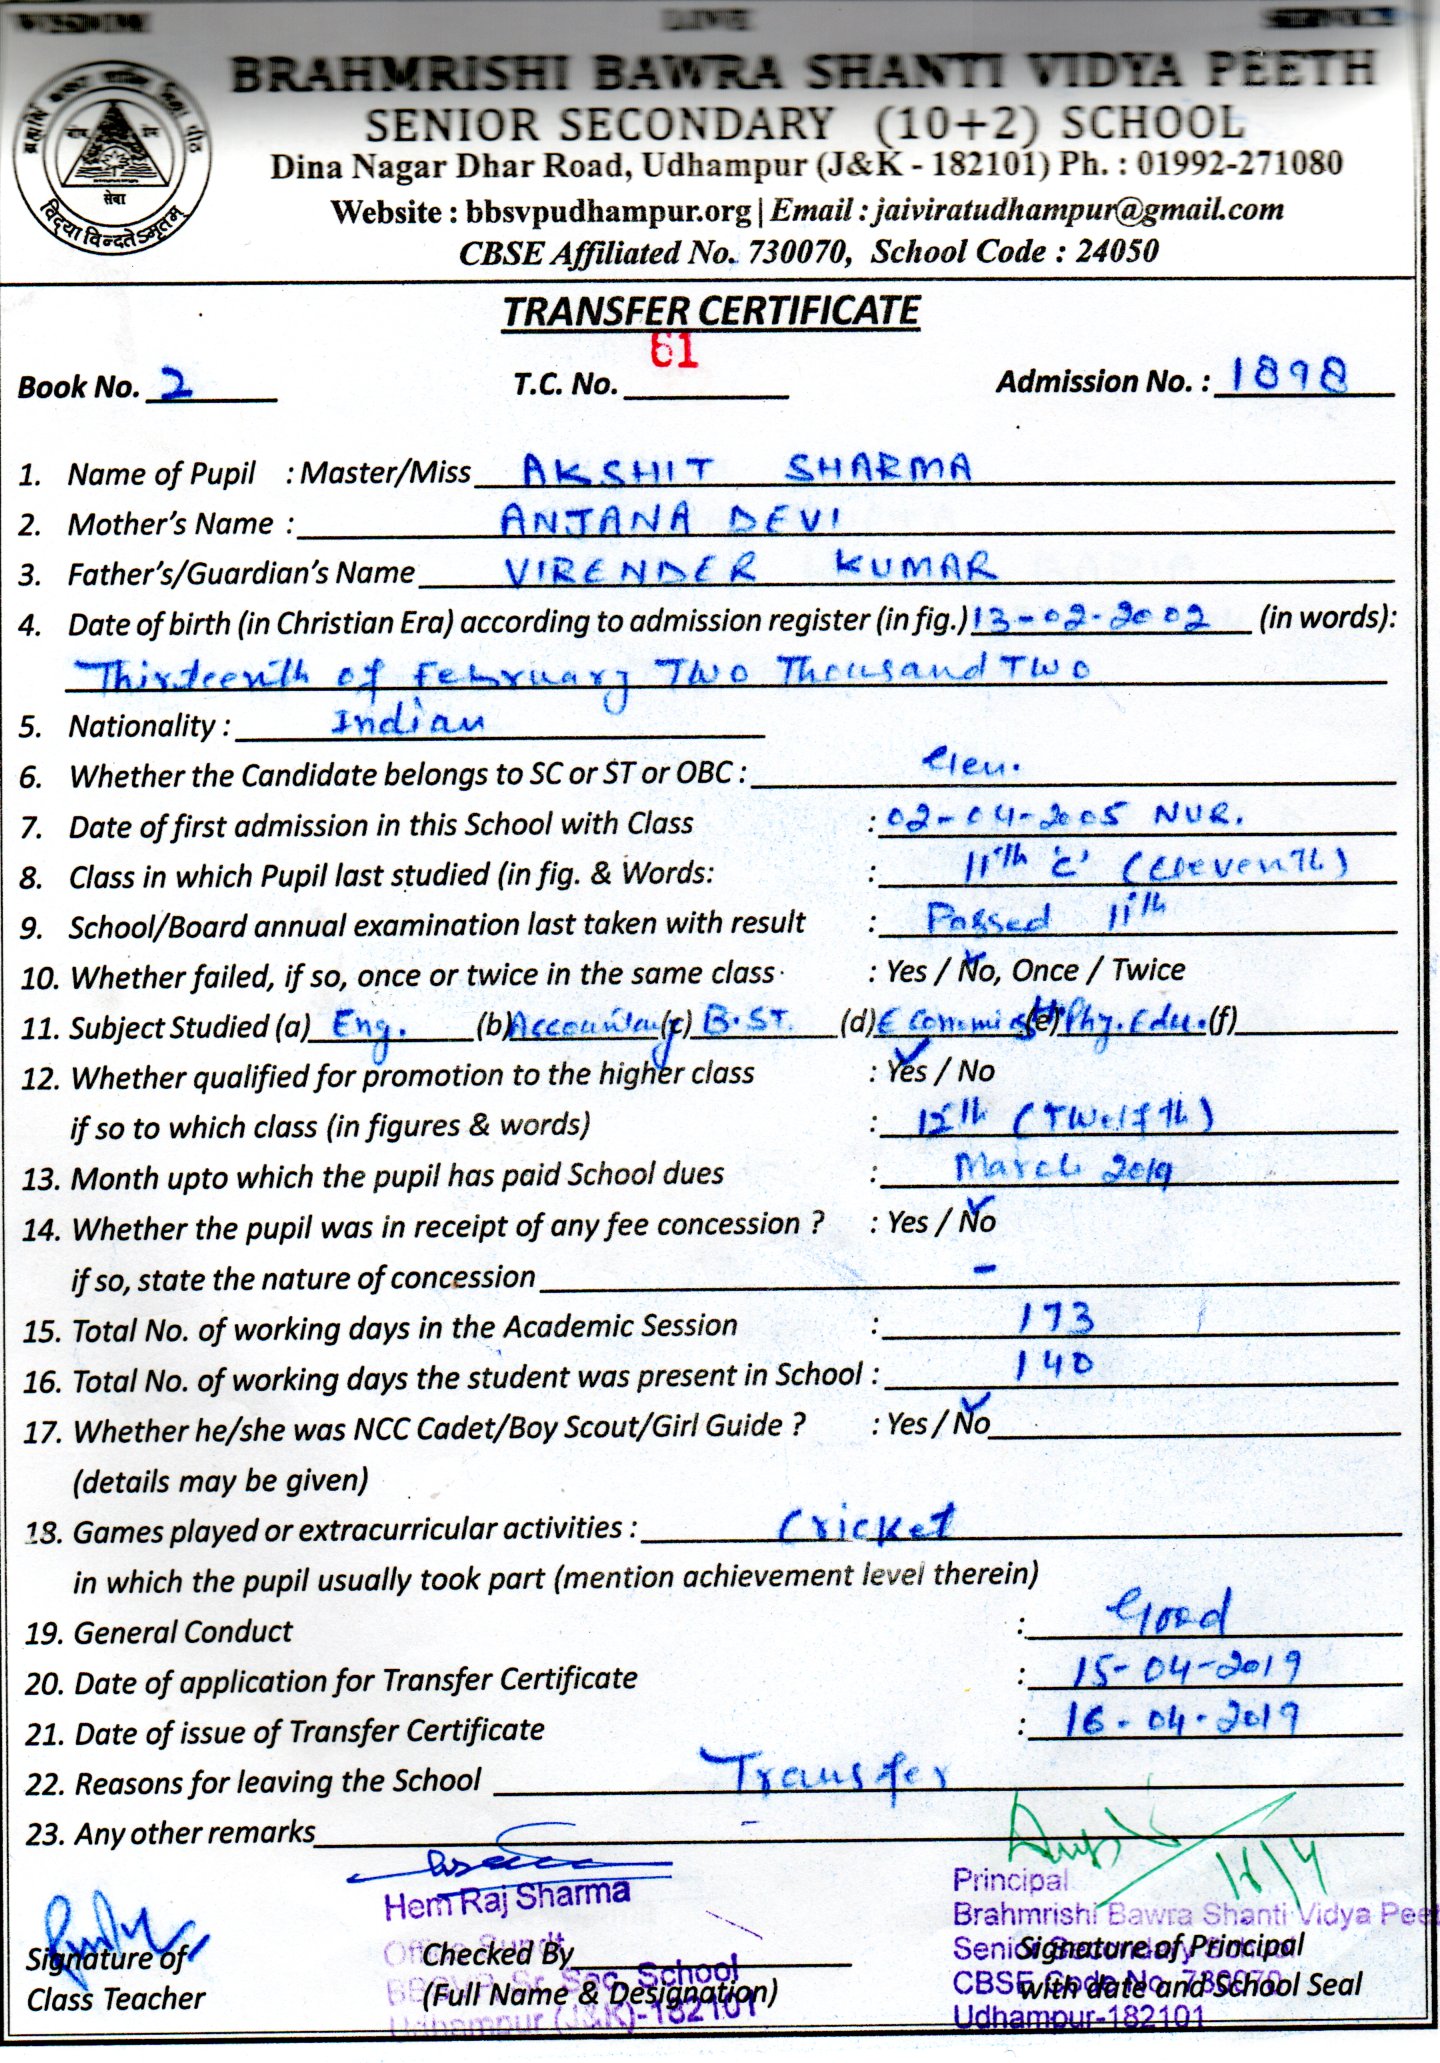 WISDOM LOVE SERVICE
BRAHMRISHI BAWRA SHANTI VIDYA PEETH
SENIOR SECONDARY (10+2) SCHOOL
Dina Nagar Dhar Road, Udhampur (J&K - 182101) Ph. : 01992-271080
Website : bbsvpudhampur.org | Email : jaiviratudhampur@gmail.com
CBSE Affiliated No. 730070, School Code : 24050
सेवा
विद्या विन्दतेऽमृतम्
TRANSFER CERTIFICATE
Book No. 2 T.C. No. 61 Admission No. : 1898
1. Name of Pupil : Master/Miss AKSHIT SHARMA
2. Mother's Name : ANJANA DEVI
3. Father's/Guardian's Name VIRENDER KUMAR
4. Date of birth (in Christian Era) according to admission register (in fig.) 13-02-2002 (in words):
Thirteenth of February Two Thousand Two
5. Nationality : Indian
6. Whether the Candidate belongs to SC or ST or OBC : Gen.
7. Date of first admission in this School with Class : 02-04-2005 NUR.
8. Class in which Pupil last studied (in fig. & Words: : 11th 'C' (Eleventh)
9. School/Board annual examination last taken with result : Passed 11th
10. Whether failed, if so, once or twice in the same class : Yes / No, Once / Twice
11. Subject Studied (a) Eng. (b) Accountancy (c) B.ST. (d) Economics (e) Phy. Edu. (f)
12. Whether qualified for promotion to the higher class : Yes / No
if so to which class (in figures & words) : 12th (Twelfth)
13. Month upto which the pupil has paid School dues : March 2019
14. Whether the pupil was in receipt of any fee concession ? : Yes / No
if so, state the nature of concession -
15. Total No. of working days in the Academic Session : 173
16. Total No. of working days the student was present in School : 140
17. Whether he/she was NCC Cadet/Boy Scout/Girl Guide ? : Yes / No
(details may be given)
18. Games played or extracurricular activities : Cricket
in which the pupil usually took part (mention achievement level therein)
19. General Conduct : Good
20. Date of application for Transfer Certificate : 15-04-2019
21. Date of issue of Transfer Certificate : 16-04-2019
22. Reasons for leaving the School Transfer
23. Any other remarks -
Hem Raj Sharma
Office Supdt
BBSVP Sr. Sec. School
Udhampur (J&K)-182101
16/4
Principal
Brahmrishi Bawra Shanti Vidya Pee
Senior Secondary School
CBSE Code No. 730070
Udhampur-182101
Signature of
Class Teacher
Checked By
(Full Name & Designation)
Signature of Principal
with date and School Seal